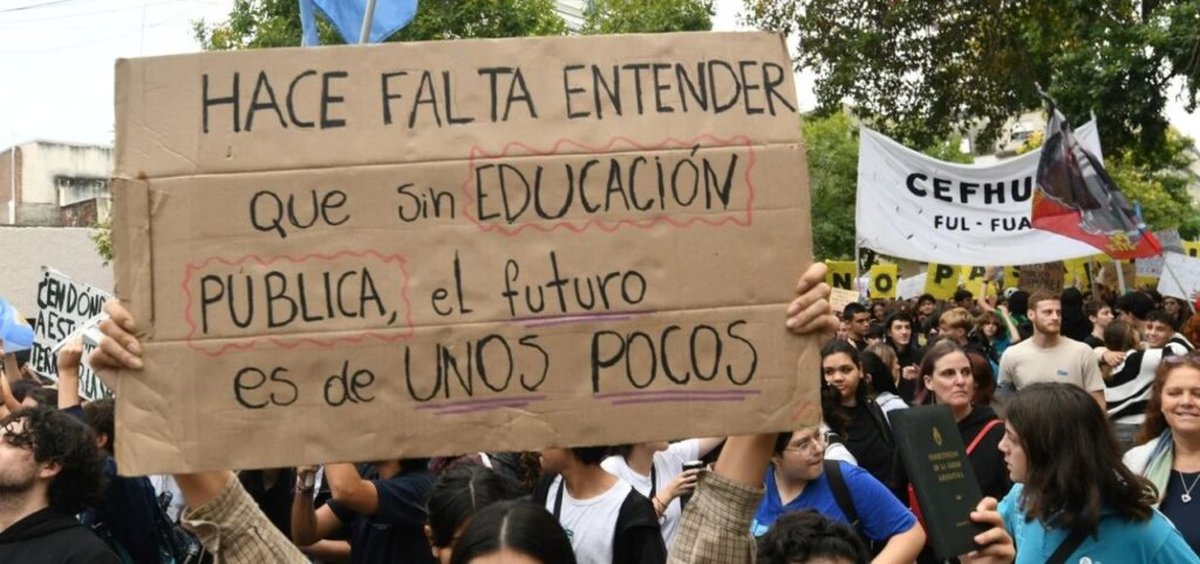 HACE FALTA ENTENDER
QUE Sin EDUCACIÓN
PÚBLICA, el futuro
es de UNOS POCOS
CEFHU
FUL - FUA
¿EN DÓND
A EST
NO
PA
CONSTITUCION
DE LA NACION
ARGENTINA